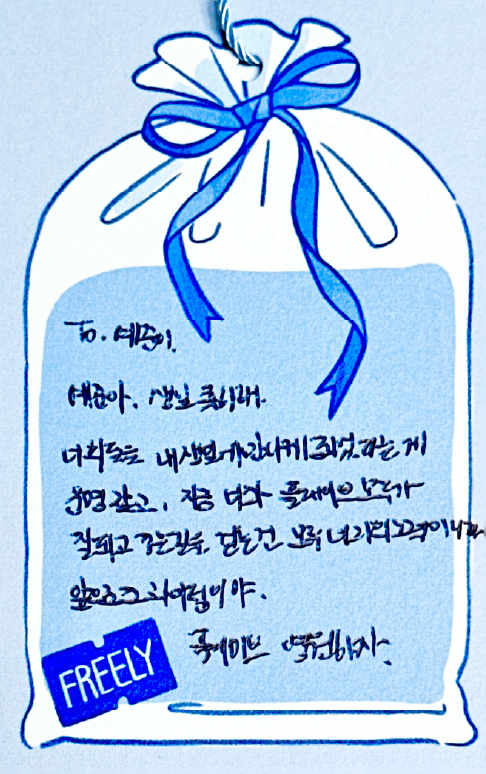 To. 예준이.
예준아. 생일 축하해.
너희들을 내 생일에 만나게 되었다는 게
운명 같고, 지금 너와 플레이브 모두가
잘되고 꾸는 길을 걷는 건 모두 너희의 노력이니까.
앞으로도 화이팅이야.
플레이브 영원하자.
FREELY